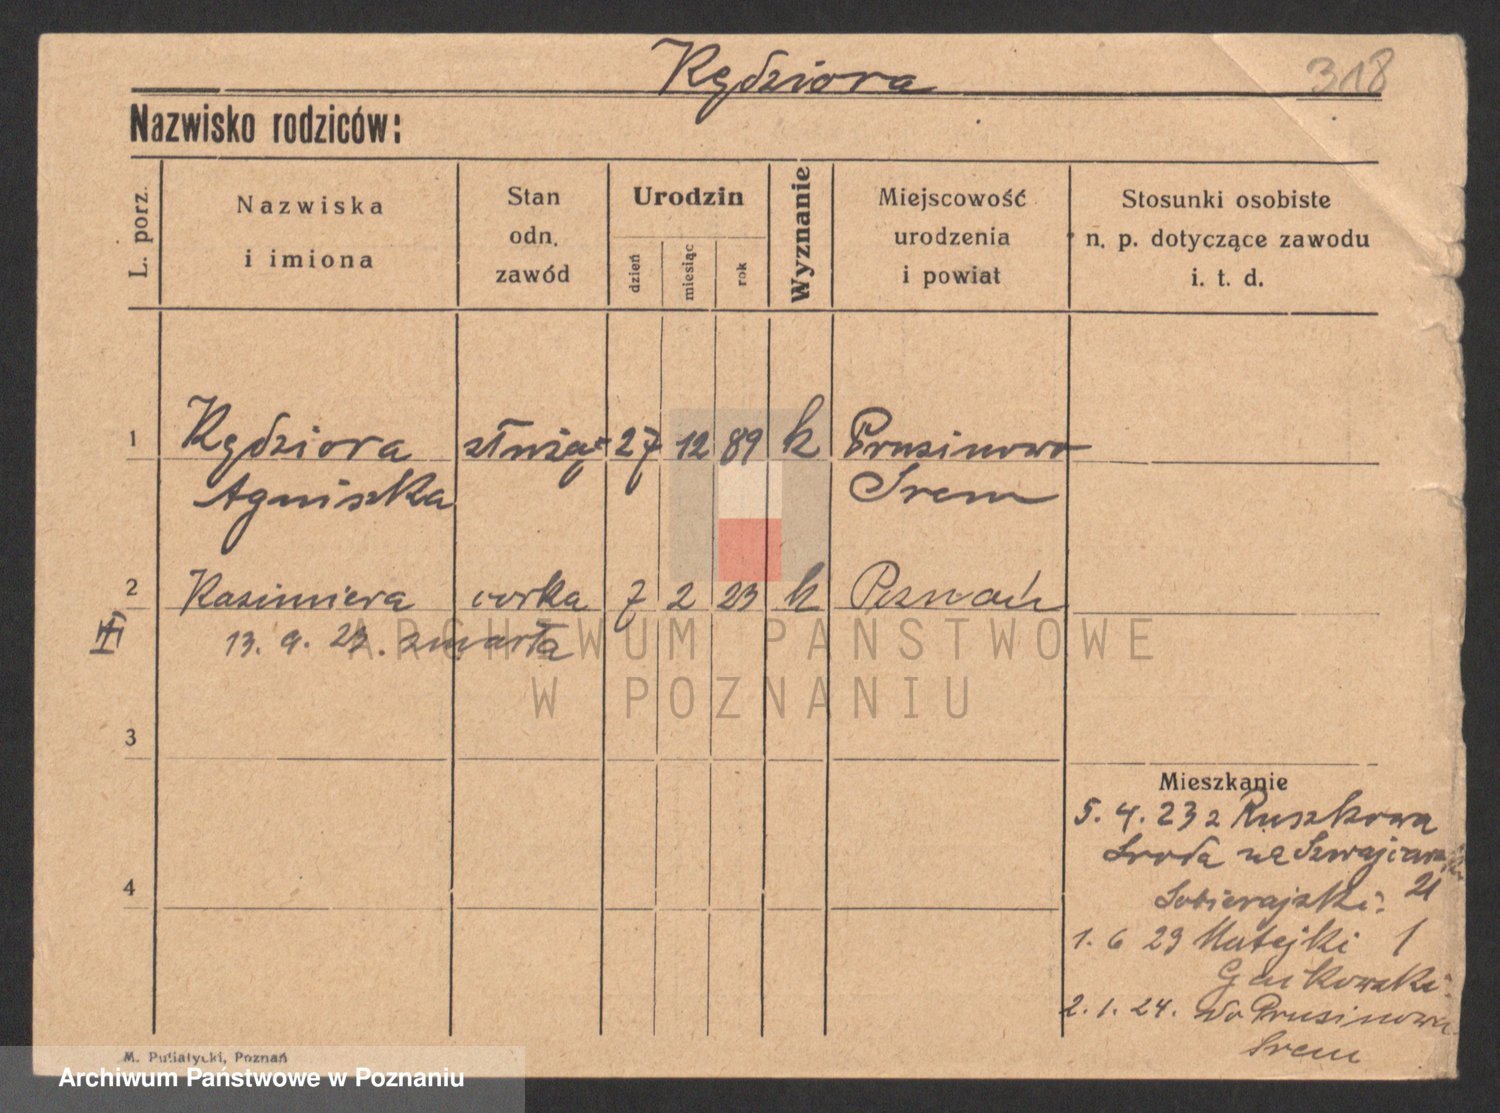 Kędziora 318
Nazwisko rodziców:
L. porz. Nazwiska i imiona Stan odn. zawód Urodzin dzień miesiąc rok Wyznanie Miejscowość urodzenia i powiat Stosunki osobiste n. p. dotyczące zawodu i. t. d.
1 Kędziora służąc 27 12 89 k Prusinowo
Agniszka Srem
2 Kasimiera corka 7 2 23 k Poznań
13. 9. 23. zmarła
ARCHIWUM PAŃSTWOWE
W POZNANIU
3
Mieszkanie
5. 4. 23 z Ruszkowa
4 Sroda
Sobierajski 21
1. 6 23 Matejki 1
2. 1. 24. do Prusinowa
Srem
M. Putiatycki, Poznań
Archiwum Państwowe w Poznaniu